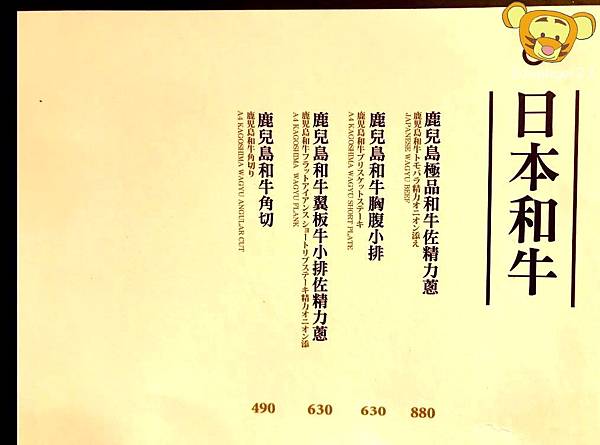 日本和牛
鹿兒島極品和牛佐精力蔥
鹿児島和牛トモバラ精力オニオン添え
JAPANESE WAGYU BEEF
880
鹿兒島和牛胸腹小排
鹿児島和牛ブリスケットステーキ
A4 KAGOSHIMA WAGYU SHORT PLATE
630
鹿兒島和牛翼板牛小排佐精力蔥
鹿児島和牛フラットアイアンス ショートリブステーキ精力オニオン添
A4 KAGOSHIMA WAGYU FLANK
630
鹿兒島和牛角切
鹿児島和牛角切り
A4 KAGOSHIMA WAGYU ANGULAR CUT
490